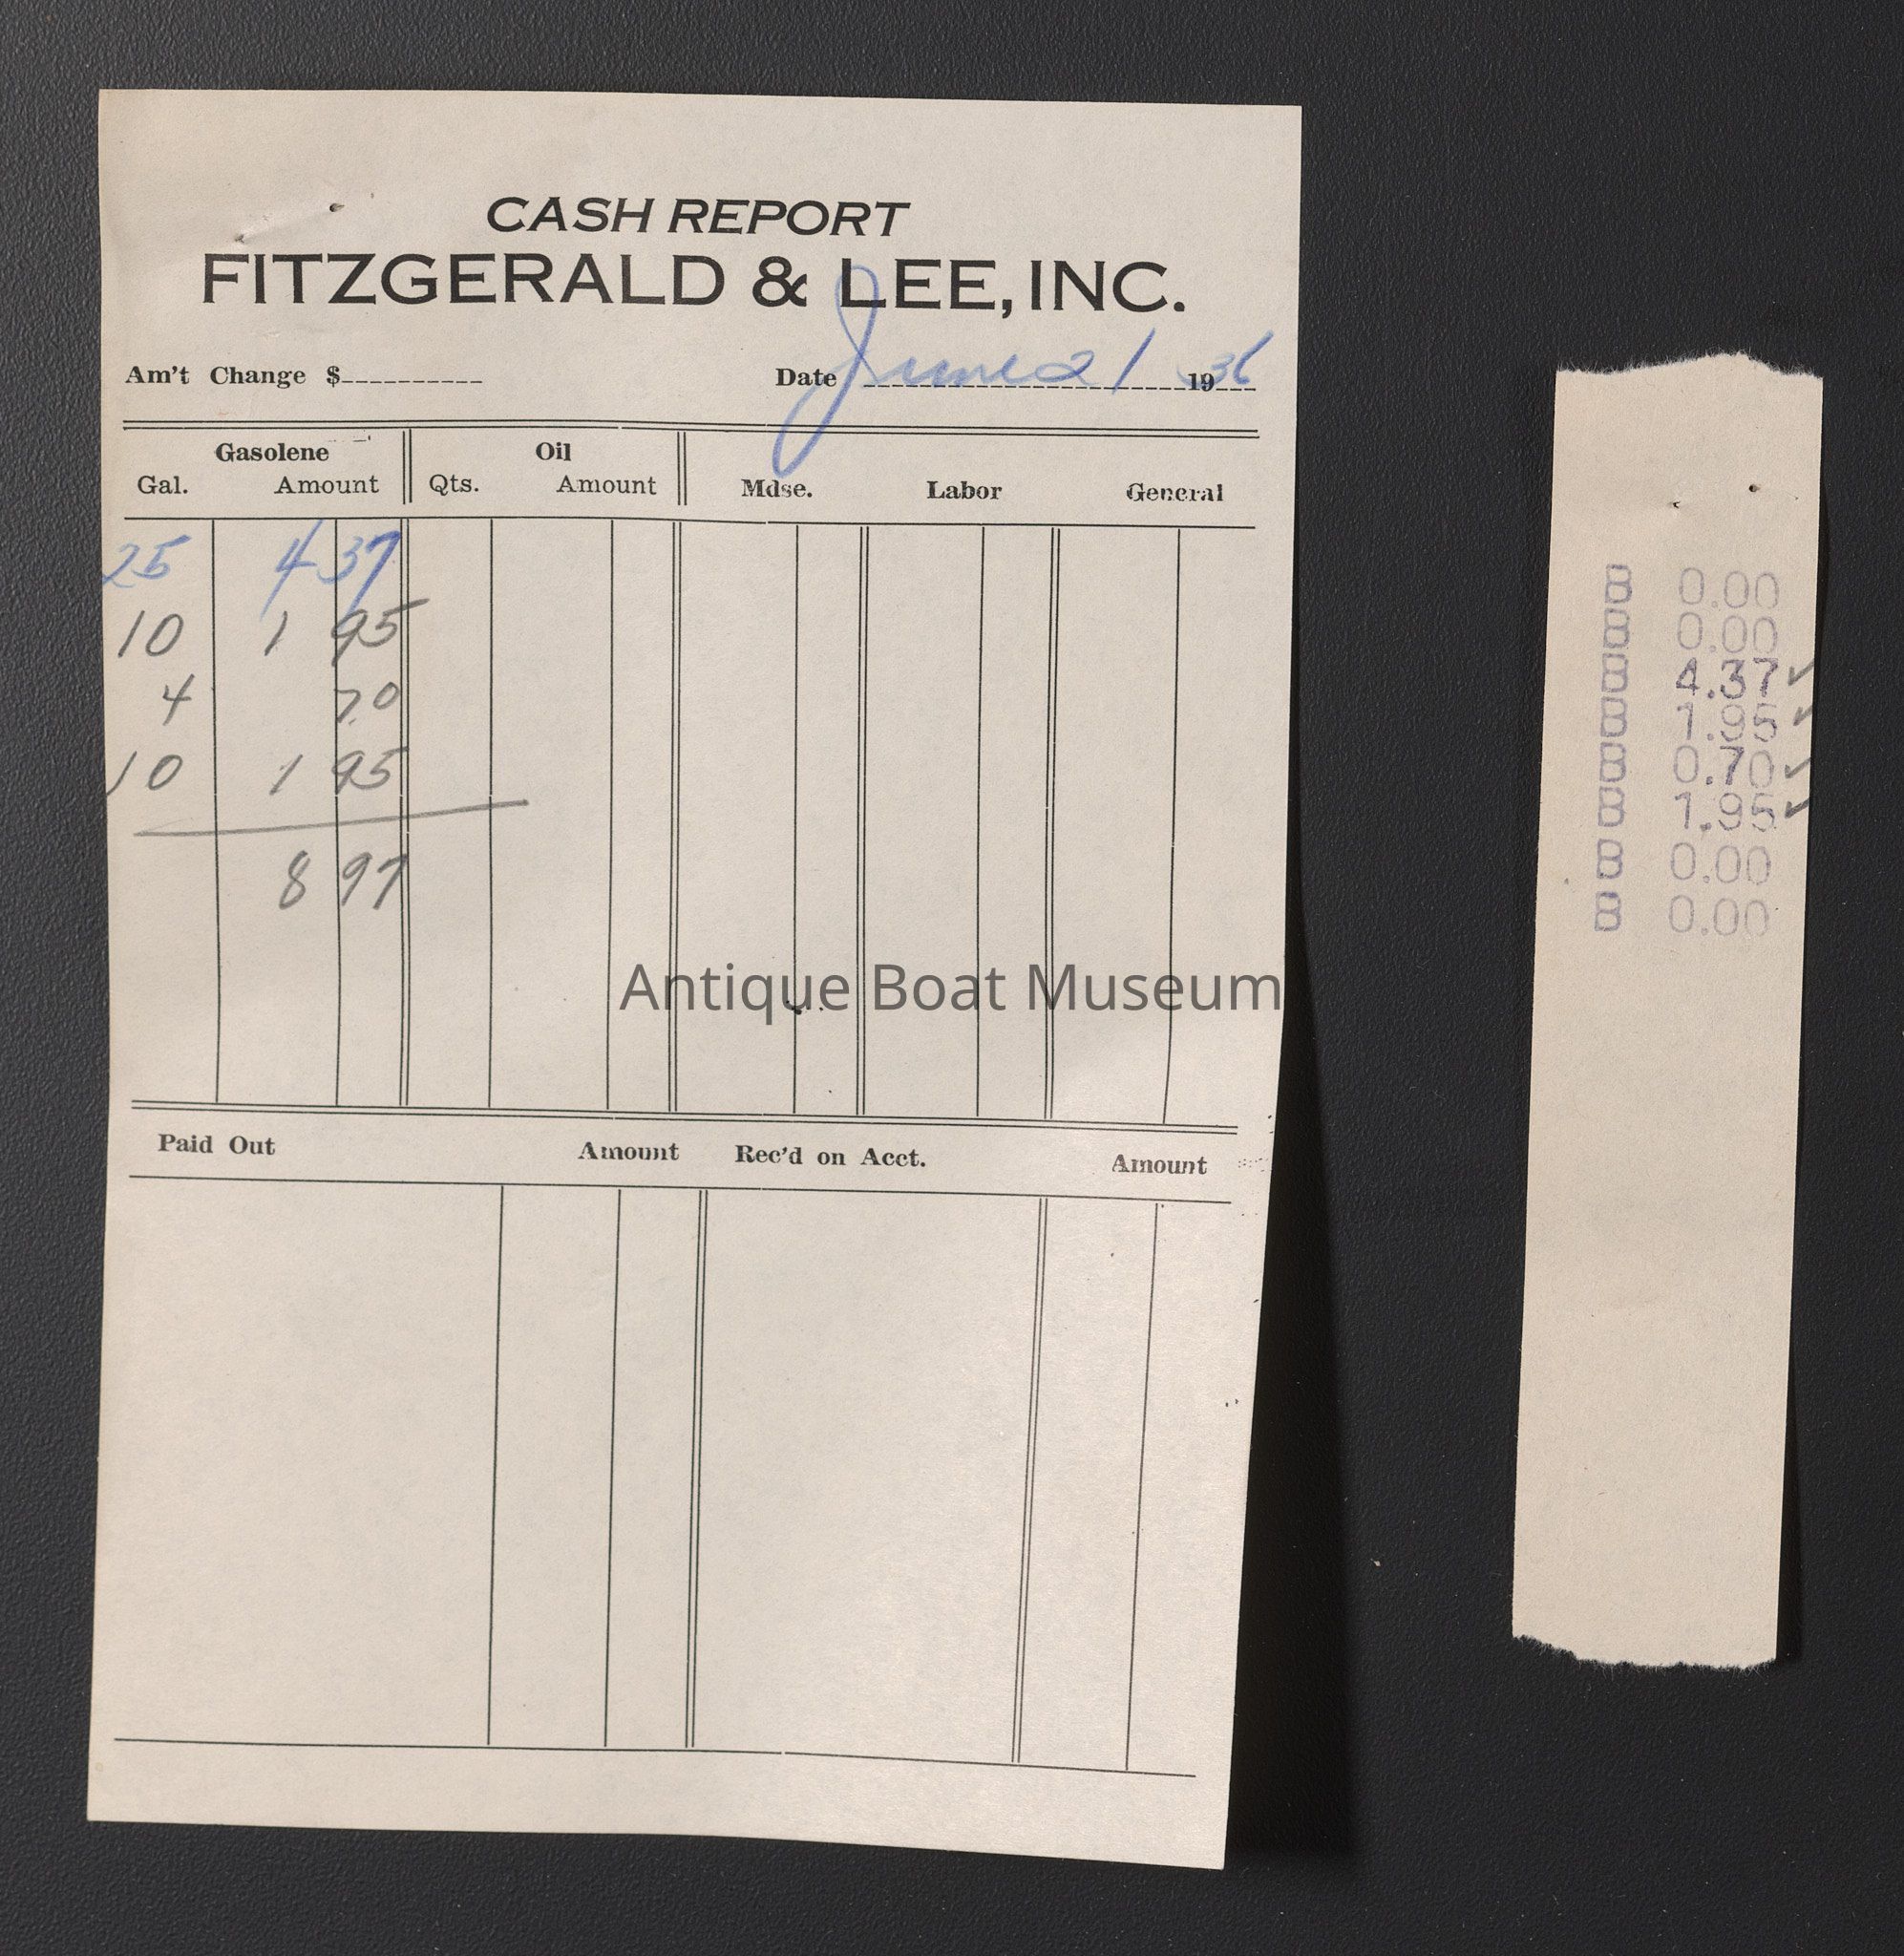 CASH REPORT
FITZGERALD & LEE, INC.
Am't Change $ Date June 21 1936
Gasolene Oil
Gal. Amount Qts. Amount Mdse. Labor General
25 4 37
10 1 95
4 70
10 1 95
8 97
Antique Boat Museum
Paid Out Amount Rec'd on Acct. Amount
B 0.00
B 0.00
B 4.37 ✓
B 1.95 ✓
B 0.70 ✓
B 1.95 ✓
B 0.00
B 0.00